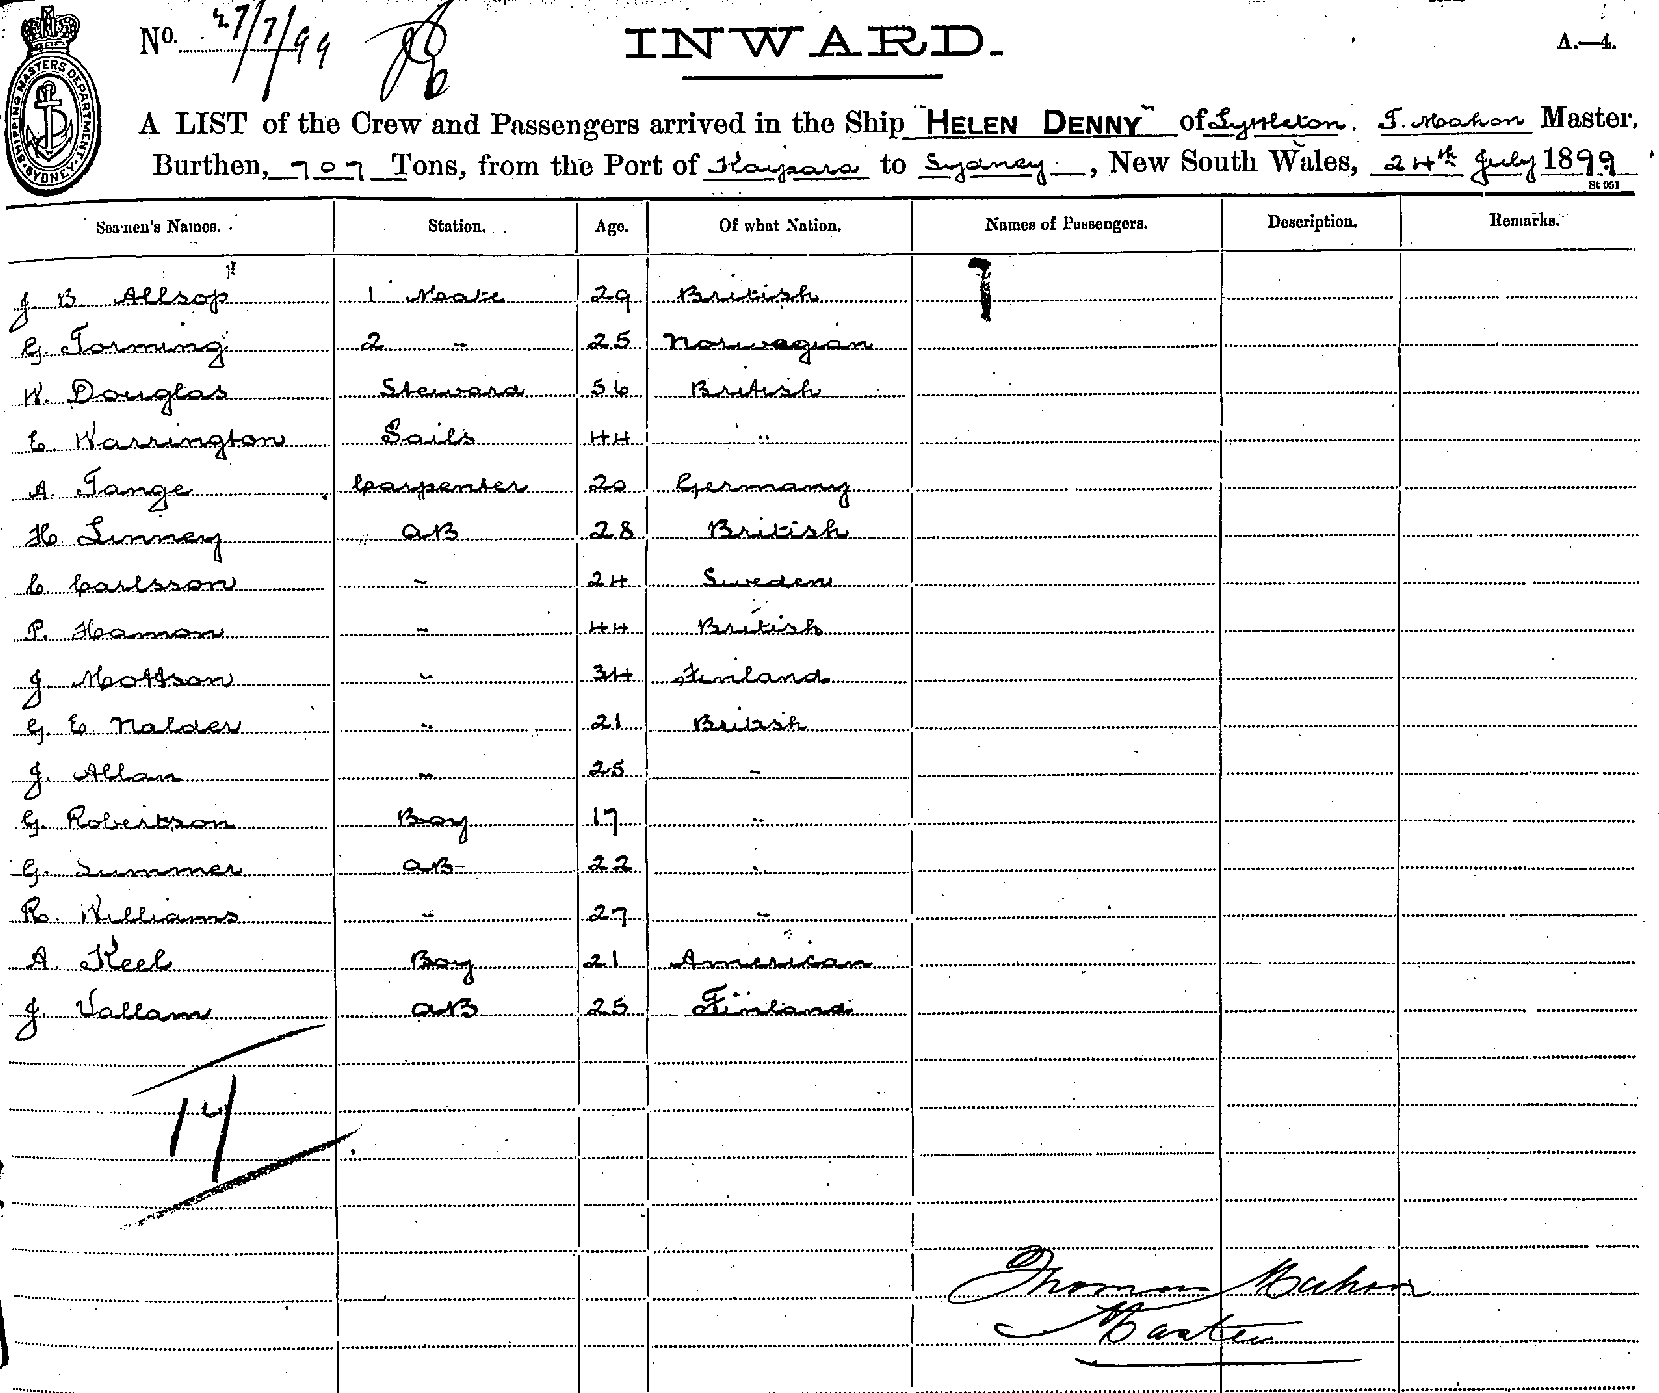 No. 27/7/99
INWARD.
A.—4.
SHIPPING MASTERS DEPARTMENT SYDNEY
A LIST of the Crew and Passengers arrived in the Ship "HELEN DENNY" of Lyttleton. T. Mahon Master,
Burthen, 707 Tons, from the Port of Kaipara to Sydney, New South Wales, 24th July 1899
St 961
Seamen's Names. Station. Age. Of what Nation. Names of Passengers. Description. Remarks.
J B Allsop 1 Mate 29 British
G. Torming 2 " 25 Norwegian
W. Douglas Steward 56 British
E Warrington Sails 44 "
A. Tange Carpenter 20 Germany
H Linney AB 28 British
C Carlsson " 24 Sweden
P. Hamon " 44 British
J Mattson " 34 Finland
G. E Nalder " 21 British
J. Allan " 25 "
G. Robertson Boy 17 "
G. Summer AB 22 "
R. Williams " 27 "
A. Keel Boy 21 American
J. Vallam AB 25 Finland
14
Thomas Mahon
Master